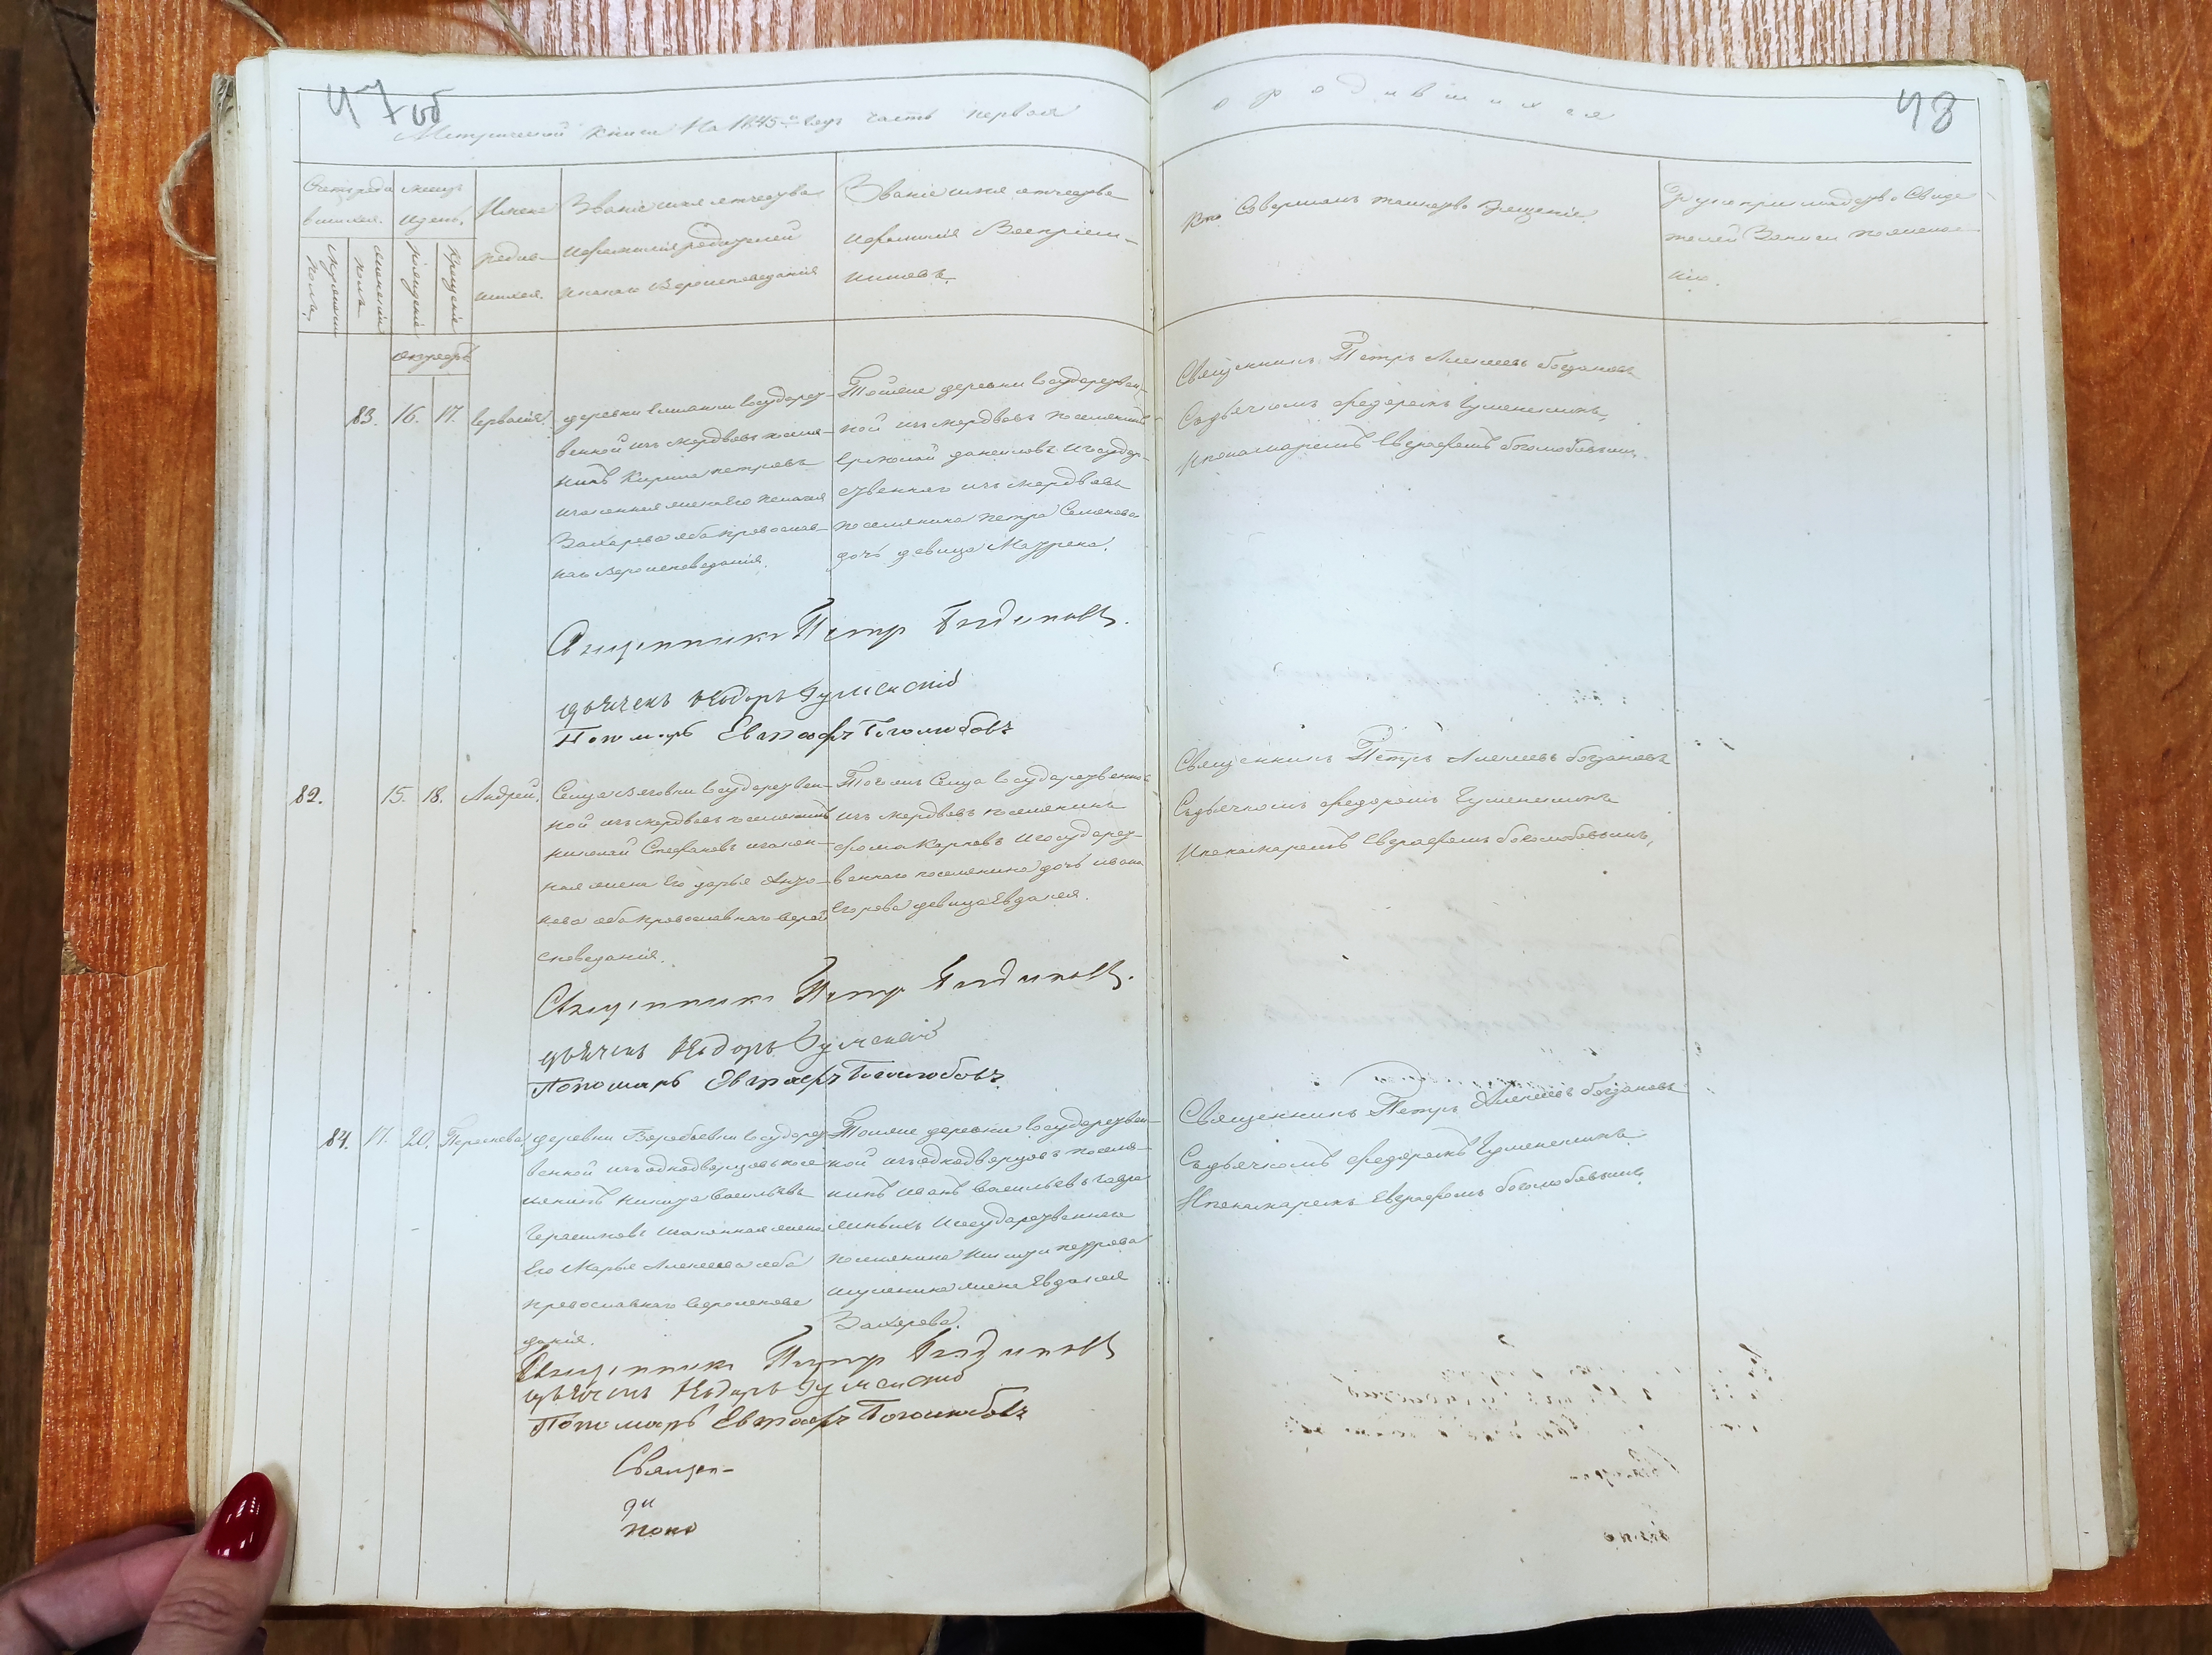 47 об
48
Метрической книги На 1845й Годъ часть первая
о родившихся
Счетъ родившихся.
мужеска пола.
женска пола
месяцъ и день.
Рожденіе
Крещеніе
Имена родившихся.
Званіе имя отчество и фамилія родителей и какого вероисповеданія
Званіе имя отчество и фамилія Воспріемниковъ.
Кто Совершалъ таинство Крещенія.
Рукоприкладство Свидетелей Записи по желанію.
октябрь
83. 16. 17.
деревни государст-
венной изъ мордвовъ поселя-
нинъ Кирила петровъ
и законная жена его пелагея
Захарова оба православ-
наго вероисповеданія.
Тойже деревни государствен-
ной изъ мордвовъ поселянинъ
Ермолай даниловъ и государ-
ственнаго изъ мордвовъ
поселянина петра Семенова
дочь девица Маурена.
Священникъ Петръ Алексеевъ богдановъ
Съ дьячкомъ федоромъ
И пономаремъ Евграфомъ боголюбовымъ.
Священникъ Петръ Богдановъ.
дьячекъ Ѳедоръ
Пономарь Евграфъ Боголюбовъ
82. 15. 18. Андрей.
Села государствен-
ной изъ мордвовъ поселянинъ
николай Стефановъ и закон-
ная жена Его дарья Анто-
нова оба православнаго верои-
споведанія.
Тогожъ Села государственной
изъ мордвовъ поселянинъ
фома Карповъ и государст-
веннаго поселянина дочь ивана
Егорова девица Евдокея.
Священникъ Петръ Алексеевъ богдановъ
Съ дьячкомъ федоромъ
И пономаремъ Евграфомъ боголюбовымъ,
Священникъ Петръ Богдановъ.
дьячекъ Ѳедоръ
Пономарь Евграфъ Боголюбовъ
84. 17. 20. Парасковья
деревни Воробьевки государст-
венной изъ однодворцовъ посе-
ленинъ никита Васильевъ
и законная жена
Его Марья Алексеева оба
православнаго вероиспове
данія.
Тойже деревни государствен-
ной изъ однодворцовъ поселя-
нинъ иванъ Васильевъ
и государственнаго
поселянина петрова
жена Евдокея
Захарова.
Священникъ Петръ Алексеевъ богдановъ
Съ дьячкомъ федоромъ
И пономаремъ Евграфомъ боголюбовымъ
Священникъ Петръ Богдановъ
дьячекъ Ѳедоръ
Пономарь Евграфъ Боголюбовъ
Священ-
дя
поно